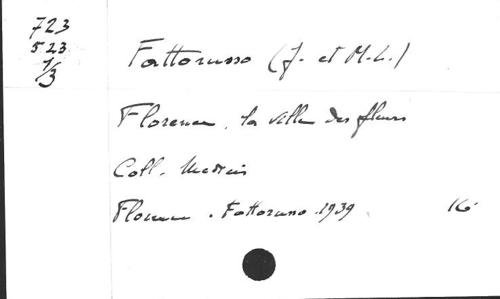 723
523
1/3
Fattorusso (J. et M.-L.)
Florence, la ville des fleurs
Coll. Medicis
Florence. Fattorusso. 1939. 16°